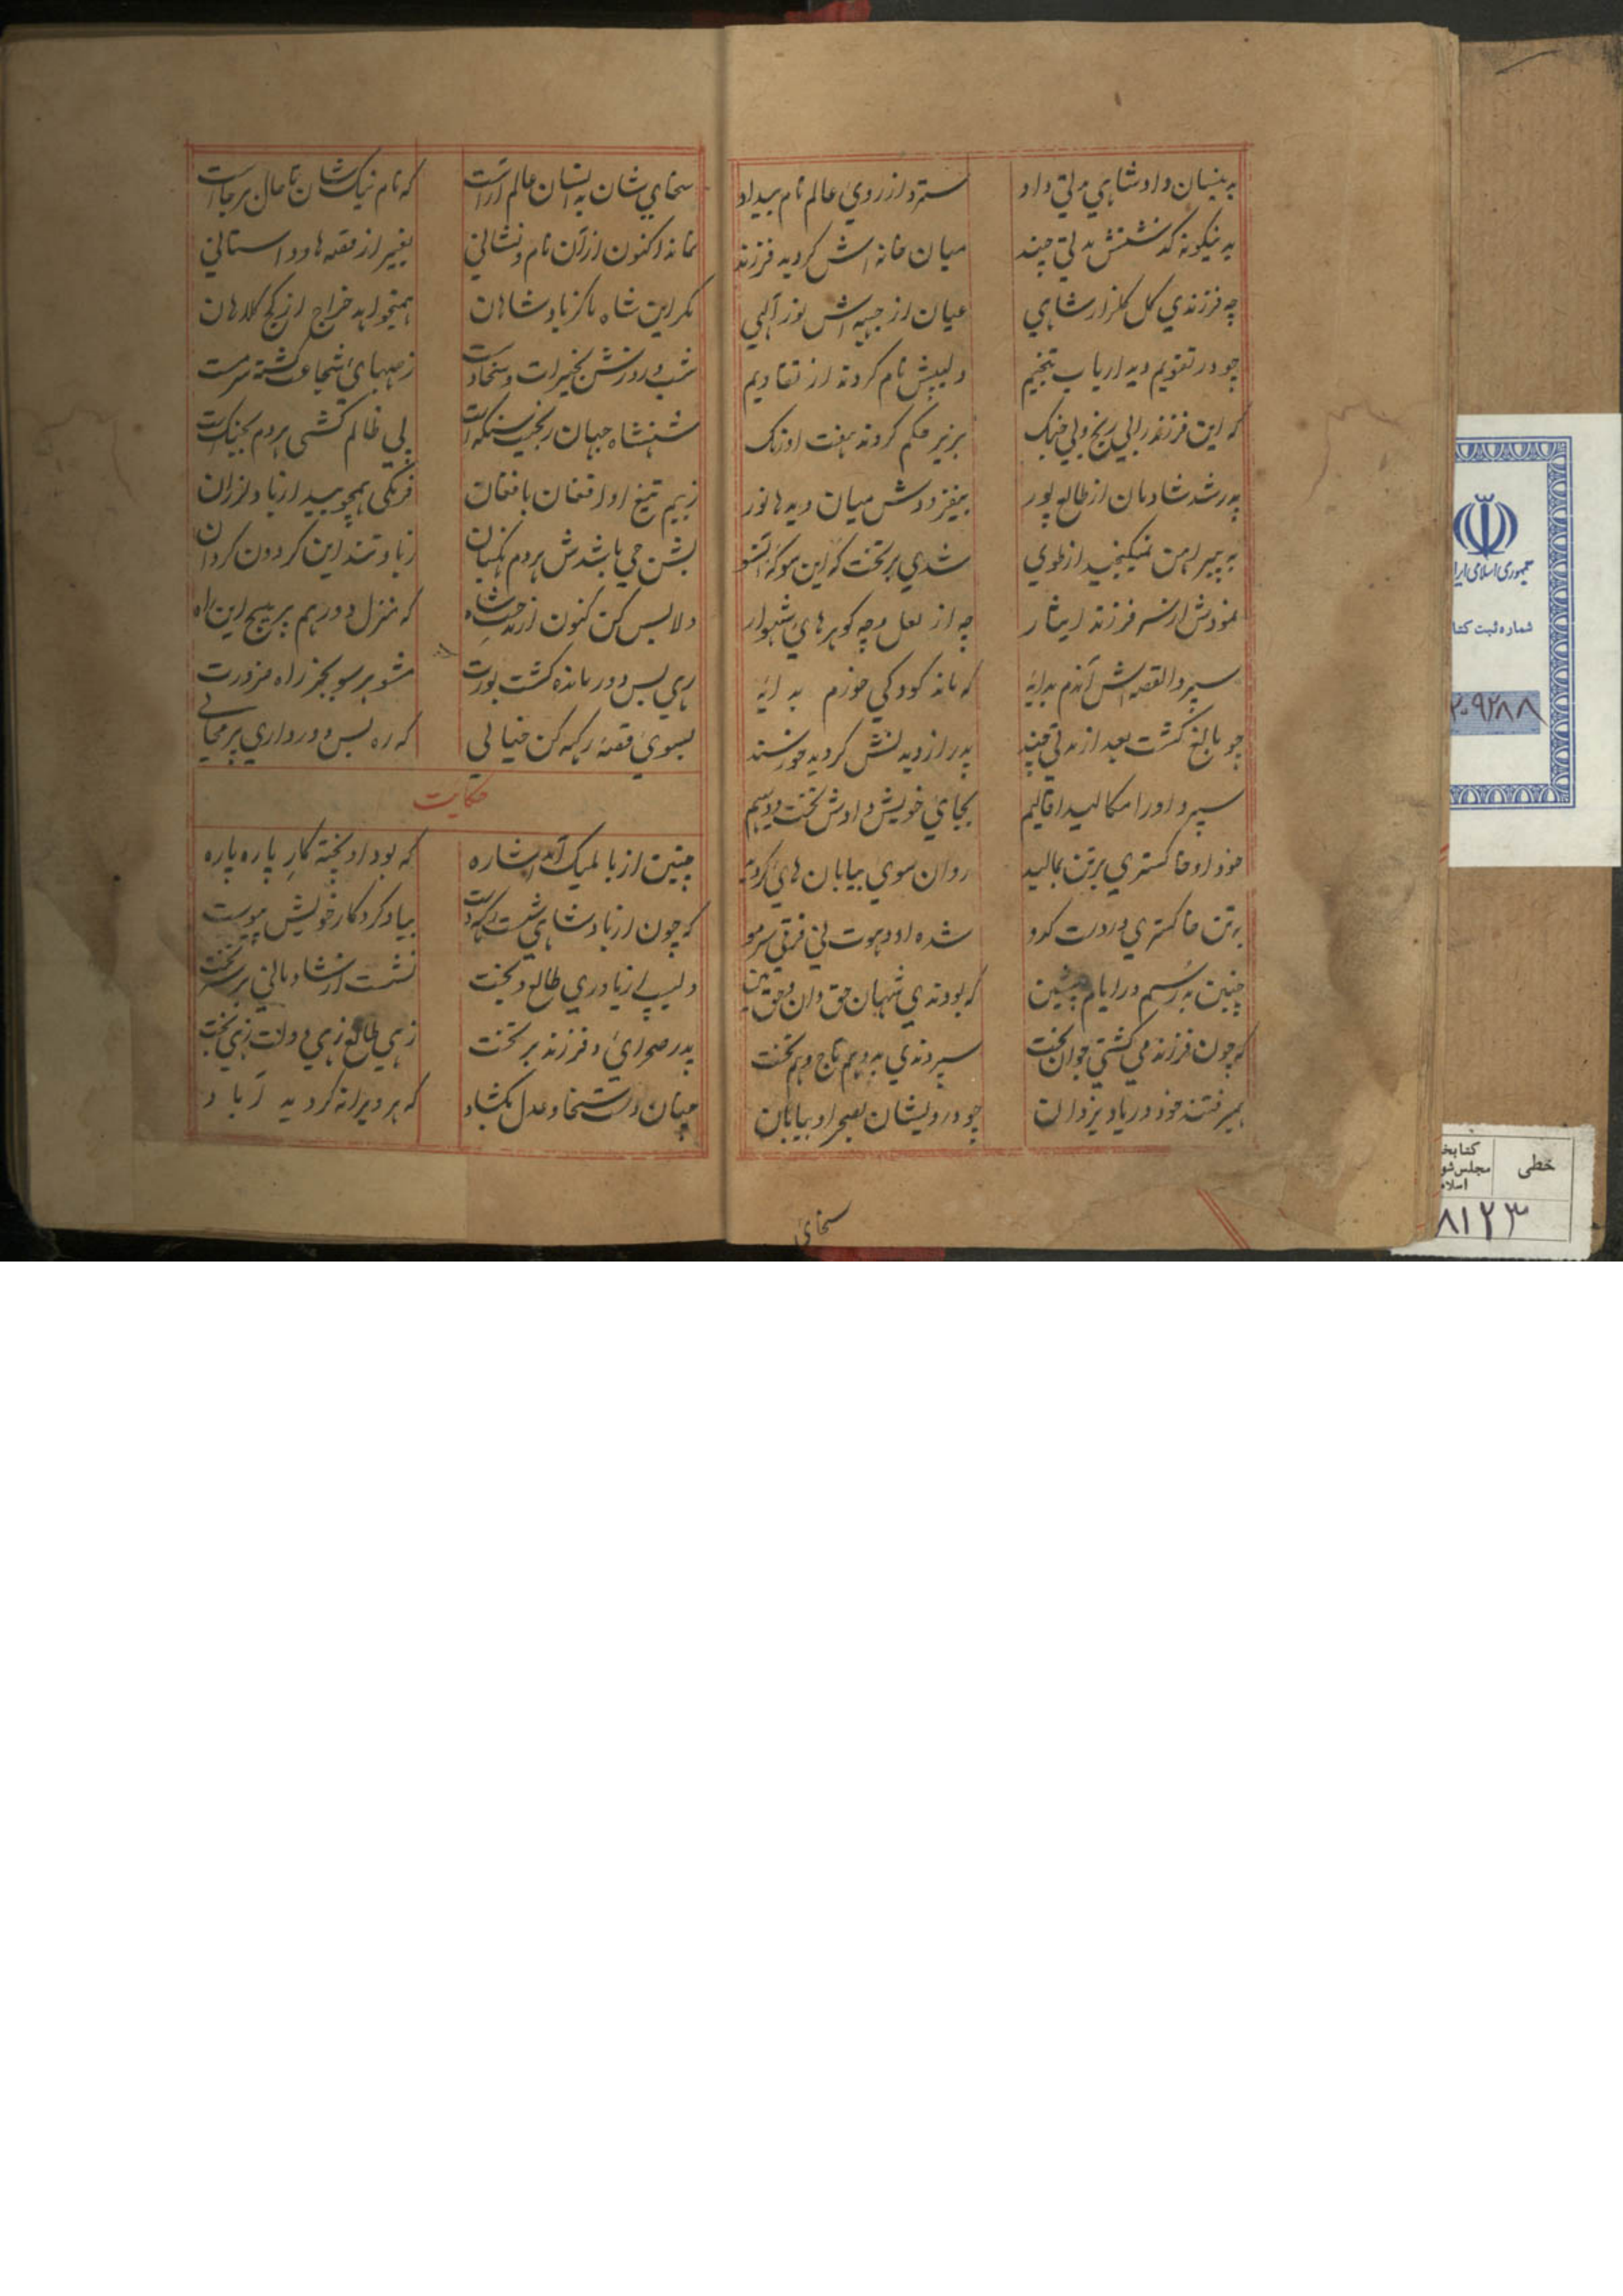 بدینسان داد شاهی مدتی داد
سترد از روی عالم نام بیداد
بدینکونه کذشتش مدتی چند
میان خانه اش کردید فرزند
چه فرزندی کل کلزار شاهی
عیان از جبهه اش نور آلهی
چو در تقویم دید ارباب تنجیم
دلیپش نام کردند از تقادیم
که این فرزند را بی رنج و بی جنک
بزیر حکم کردند هفت اورنک
پدر شد شادمان از طالع پور
بیفزودش میان دیدها نور
به پیراهن نمیکنجید از طوی
شدی بر تخت که این سو که آنسو
نمودش از سر فرزند ایثار
چه از لعل و چه کوهرهای شهوار
سپرد القصه اش آندم بدایه
که ماند کودکی خورم به دایه
چو بالغ کشت بعد از مدتی چند
پدر از دیدنش کردید خورسند
سپرد او را مکالید اقالیم
بجای خویش دادش تخت و دیهیم
خود او خاکستری برتن بمالید
روان سوی بیابان های کردید
به تن خاکستری در دست کدو
شده او دهوت نی فرقی سر مو
چنین بد رسم در ایام پیشین
که بودندی شهان حق دان و حق بین
که چون فرزند می کشتی جوان بخت
سپردندی بدو هم تاج و هم تخت
همیرفتند خود در یاد یزدان
چو درویشان بصحرا و بیابان
سخای
سخای شان بدانسان عالم آراست
که نام نیک شان تا حال برجاست
نماند اکنون از آن نام و نشانی
بغیر از قصه ها و داستانی
مکر این شاه ما کز پادشاهان
همیخواهد خراج از کج کلاهان
شب و روزش بخیرات و سخاوت
ز صهبای شجاعت کشته سرمست
شهنشاه جهان رنجیت سنکه است
پی ظالم کشی هردم بجنکست
ز بیم تیغ او افغان بافغان
فرنکی همچو بید از باد لرزان
بشن جی باشدش هردم نکهبان
زیاد تند این کردون کردان
دلا بس کن کنون از مدحت شاه
که منزل دور هم پر پیچ این راه
رهی بس دور مانده کشت بورت
مشو هر سو بجز راه ضرورت
بسوی قصهٔ رکهه کن خیالی
که ره بس دور داری پر محالی
حکایت
چنین از بالمیک آمد اشاره
که بود او پخته کار پاره پاره
که چون از پادشاهی شست رکهه دست
بیاد کردکار خویش پیوست
دلیپ از یاوری طالع و بخت
نشست از شادمانی بر سر تخت
پدر صحرای و فرزند بر تخت
زهی طالع زهی دولت زهی بخت
چنان دست سخا و عدل بکشاد
که هر ویرانه کردید آباد
جمهوری اسلامی ایرا
شماره ثبت کتا
۲۰۹۲۸۸
خطی
کتابخ
مجلس شو
اسلا
۸۱۲۳